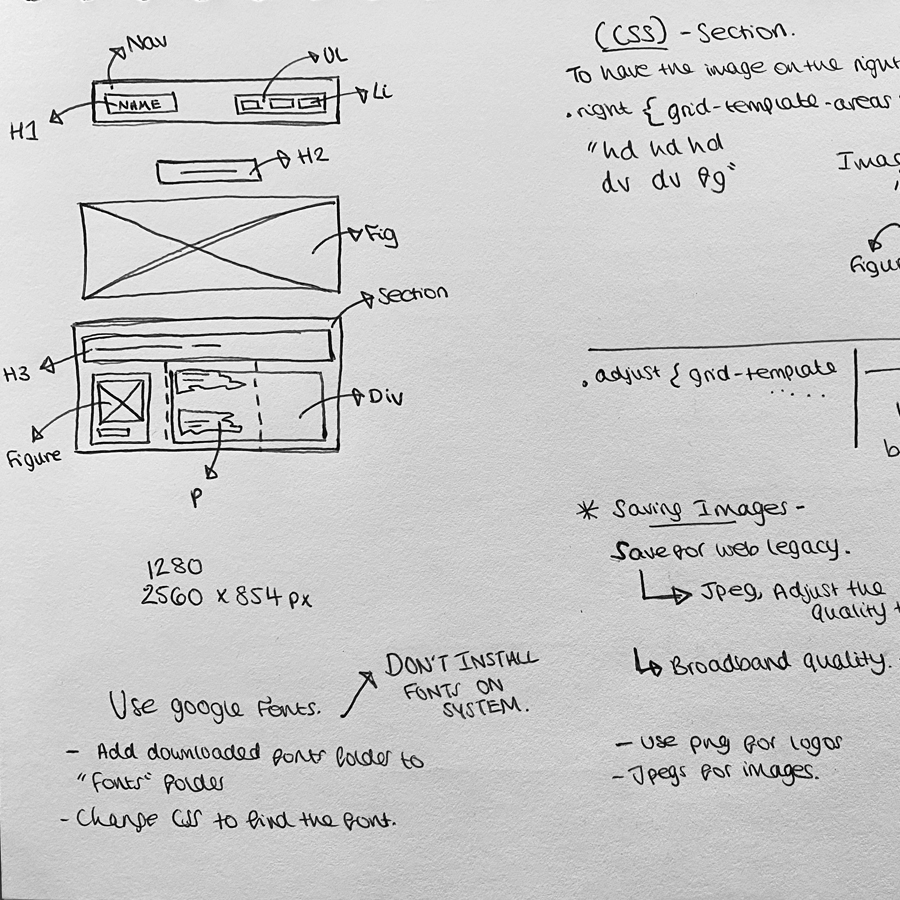 Nav
UL
NAME
Li
H1
H2
Fig
Section
H3
Div
Figure
P
1280
2560 x 854 px
DON'T INSTALL
FONTS ON
SYSTEM.
Use google Fonts.
- Add downloaded fonts folder to
"Fonts" folder
- Change CSS to find the font.
(CSS) - Section.
To have the image on the right
.right { grid-template-areas
"hd hd hd
dv dv fg"
.adjust { grid-template
.....
* Saving Images -
Save for web legacy.
Jpeg, Adjust the
quality
Broadband quality.
- Use png for logos
- Jpegs for images.